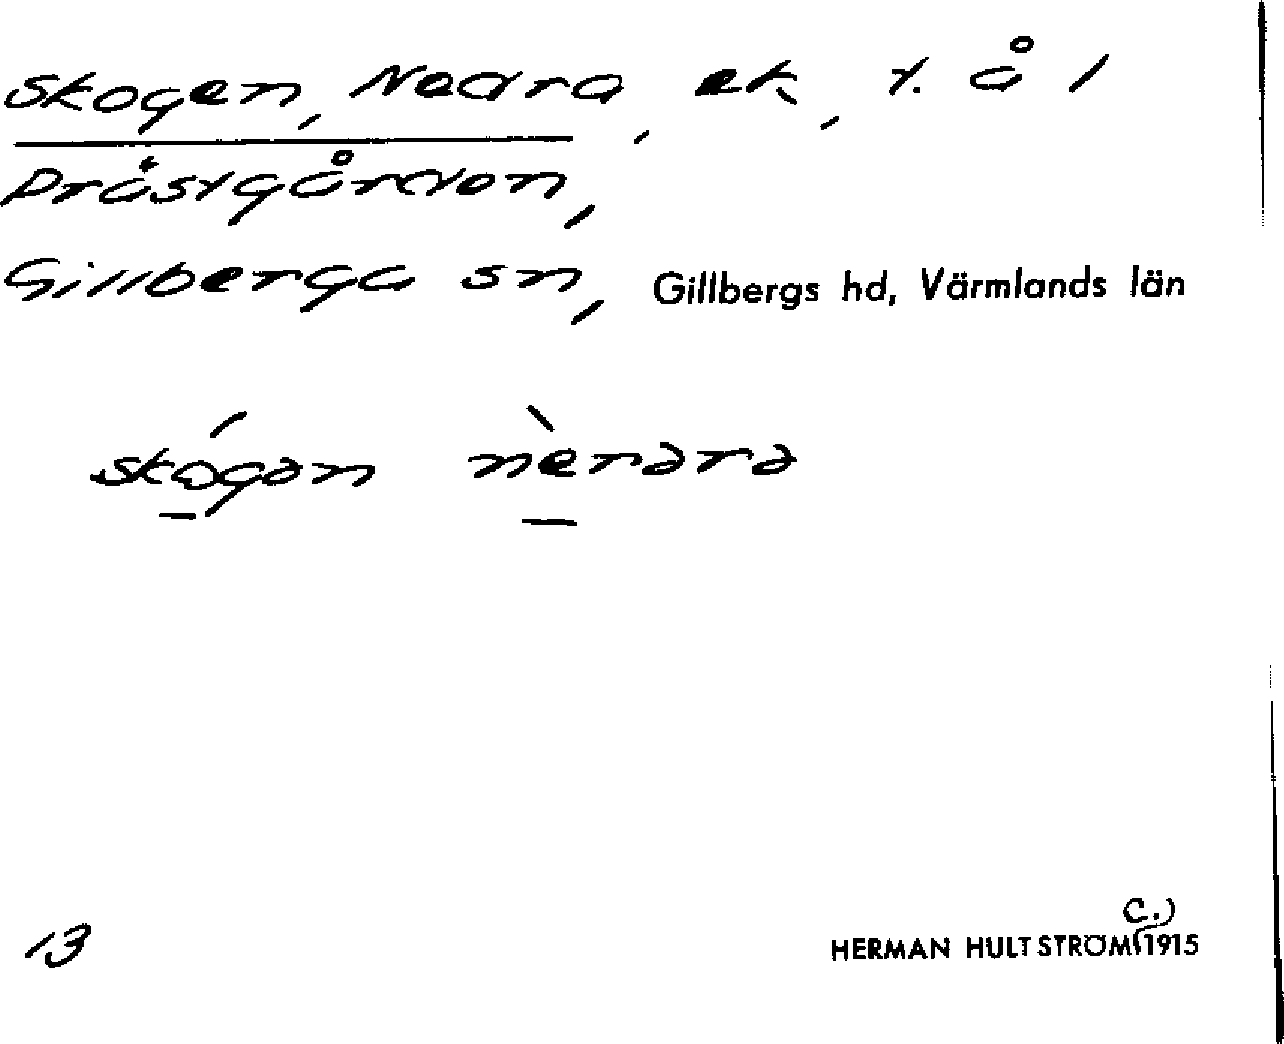 Skogen, Nedra, ek, t. å 1
Prästgården,
Gillberga sn, Gillbergs hd, Värmlands län
skógən nèrərə
13
HERMAN HULTSTRÖM (C.) 1915